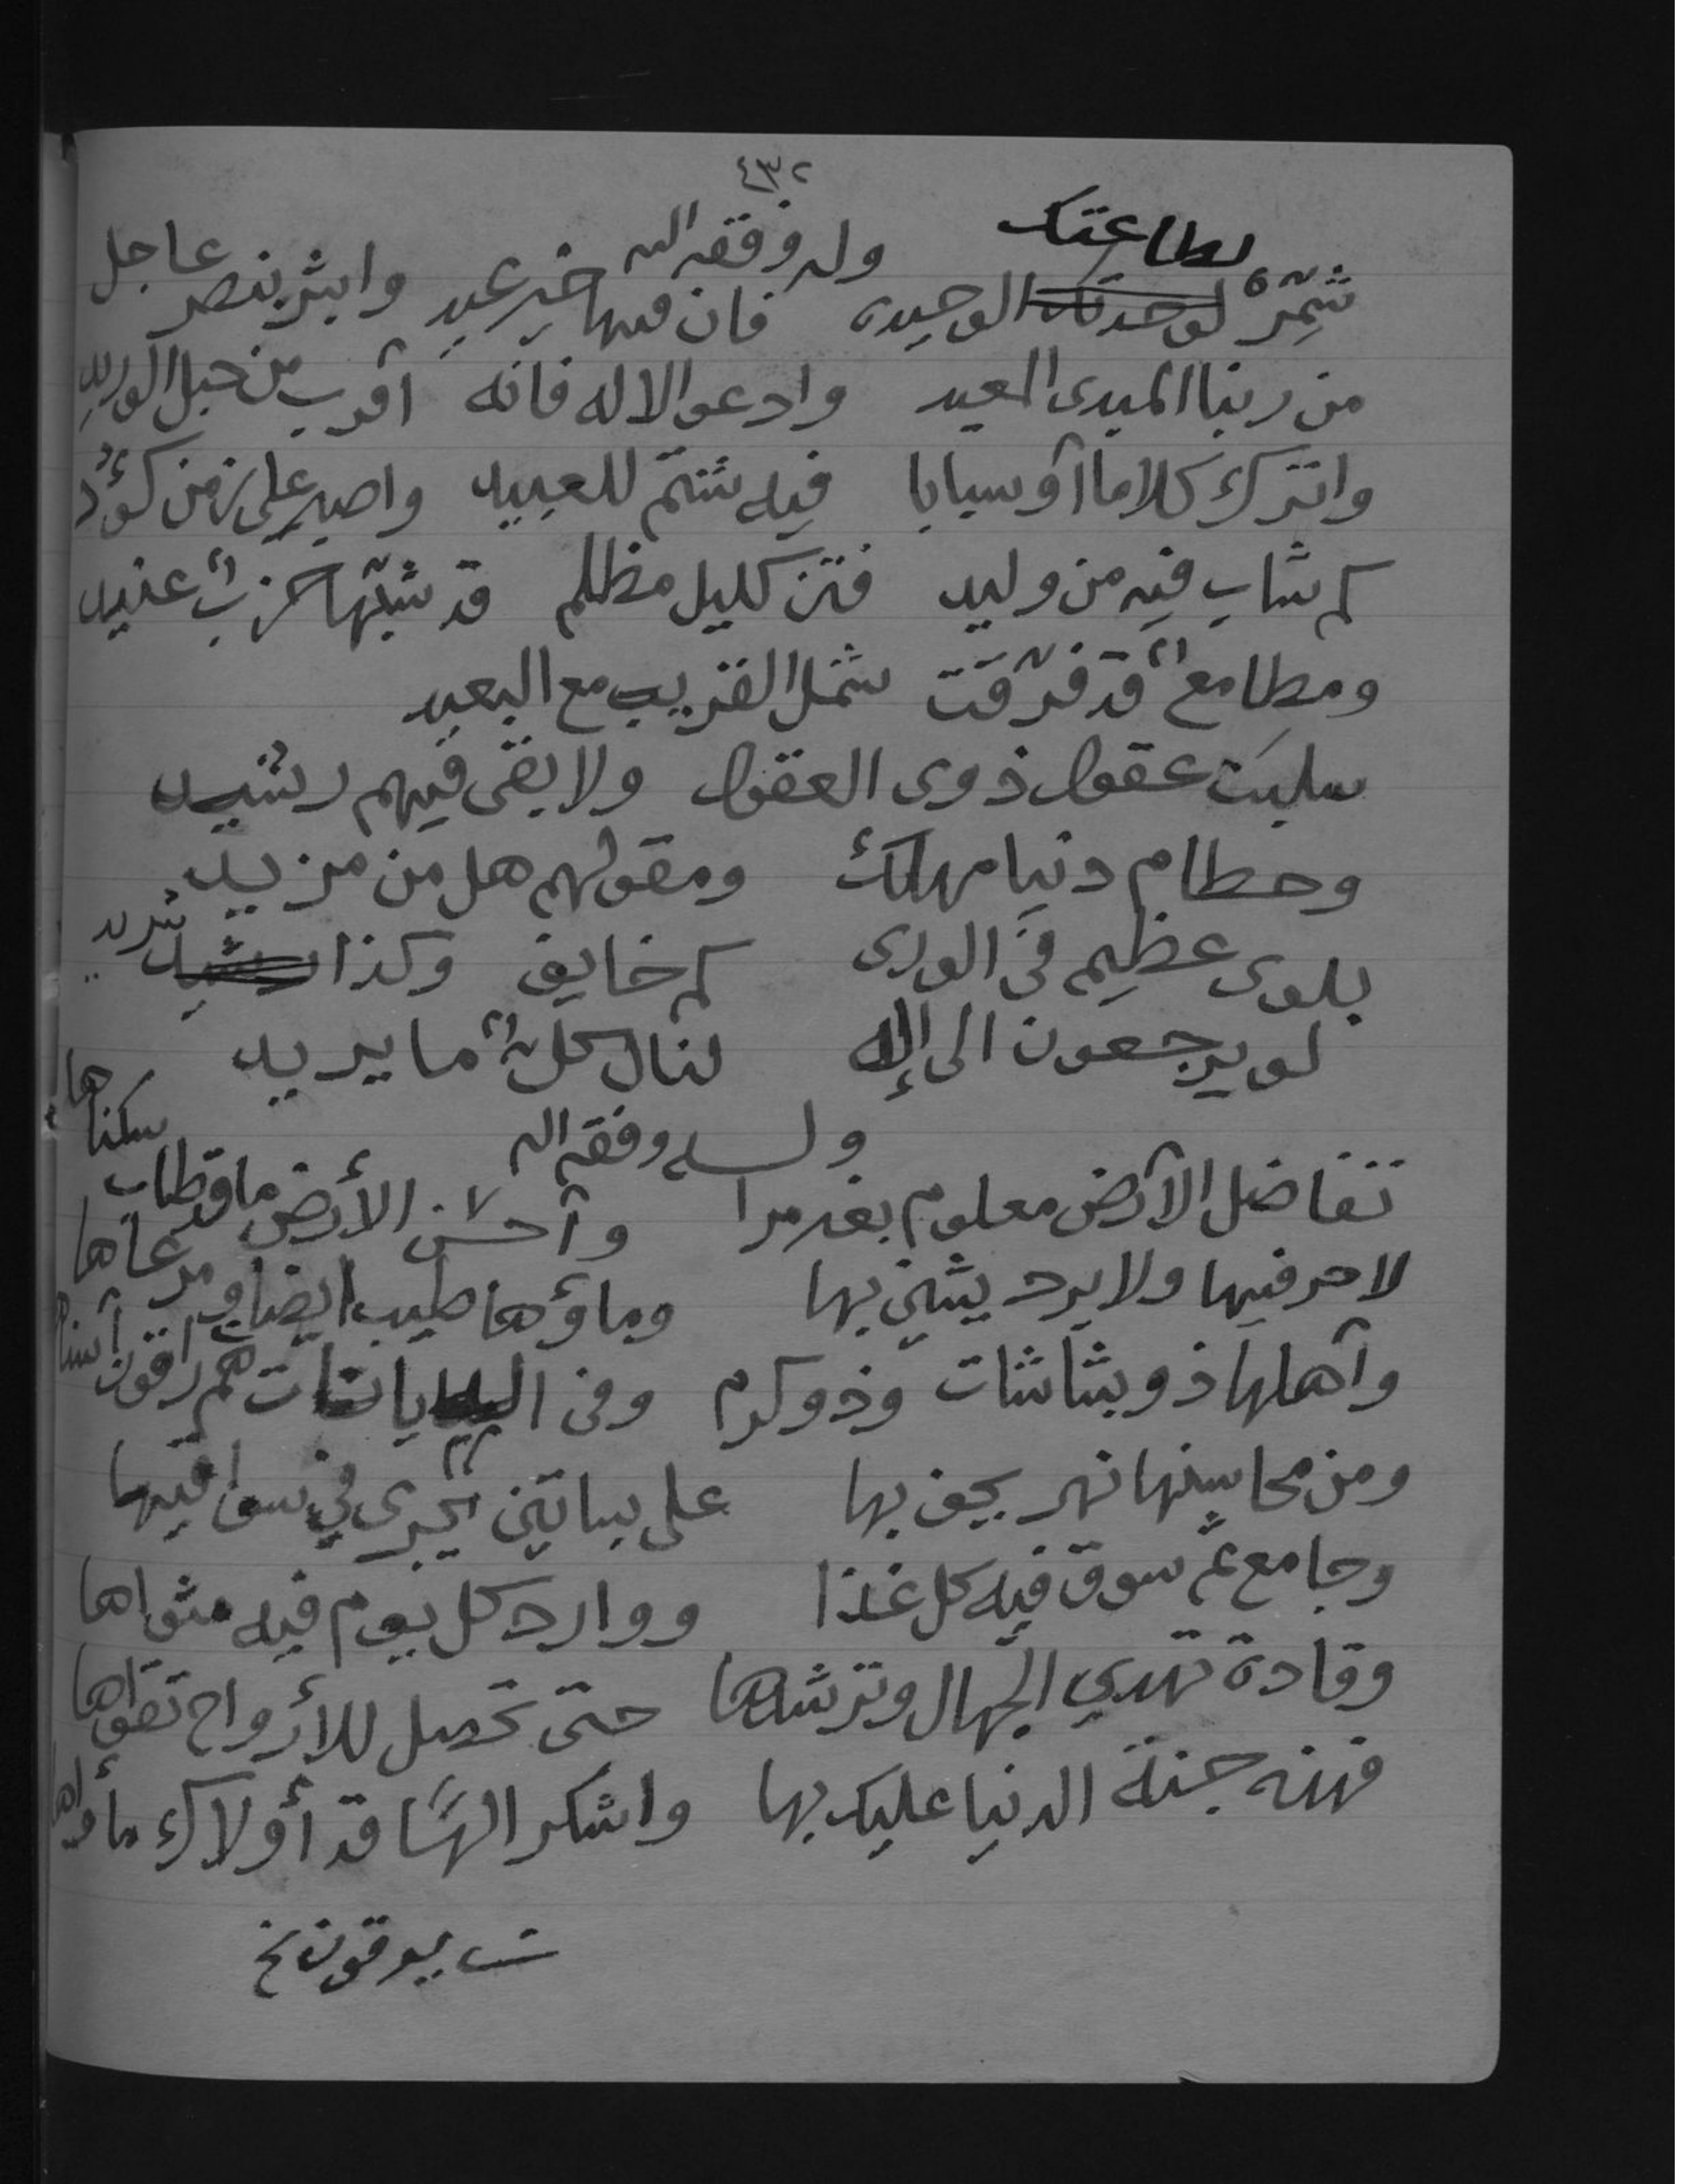 ٤٣٢
وله وفقه الله
لطاعتك
شمّرْ لوحدتك الوحيدى فان فيها خير عيد وابشر بنصر عاجل
من ربنا المبدى المعيد وادعو الاله فانه أقرب من حبل الوريد
واترك كلاما أو سبابا فيه شتم للعبيد واصبر على زمن كؤد
كم شاب فيه من وليد فتن كليل مظلم قد شبّها حزبٌ عنيد
ومطامعٌ قد فرّقت شمل القريب مع البعيد
سلبت عقول ذوى العقول ولا بقى فيهم رشيد
وحطام دنيا مهلكٌ ومقولهم هل من مزيد
بلوى عظيم فى الورى كم خايف وكذا شريد
لو يرجعون الى إلاله لنال كلٌّ ما يريد
ولــه وفقه الله
تفاضل الأرض معلوم بغير مرا وأحسن الأرض ما قد طاب سكناها
لا حر فيها ولا برد يشين بها وماؤها طيب ايضا ومرعاها
وأهلها ذو بشاشات وذو كرم وفى الديانات هم راقون أسناها
ومن محاسنها نهر يحف بها على بساتين يجرى في سواقيها
وجامع ثم سوق فيه كل غذا ووارد كل يوم فيه مثواها
وقادة تهدي الجهال وترشدها حتى تحصل للأرواح تقواها
فهذه جنة الدنيا عليك بها واشكر الهًا قد أولاك مأواها
يرقون نخ